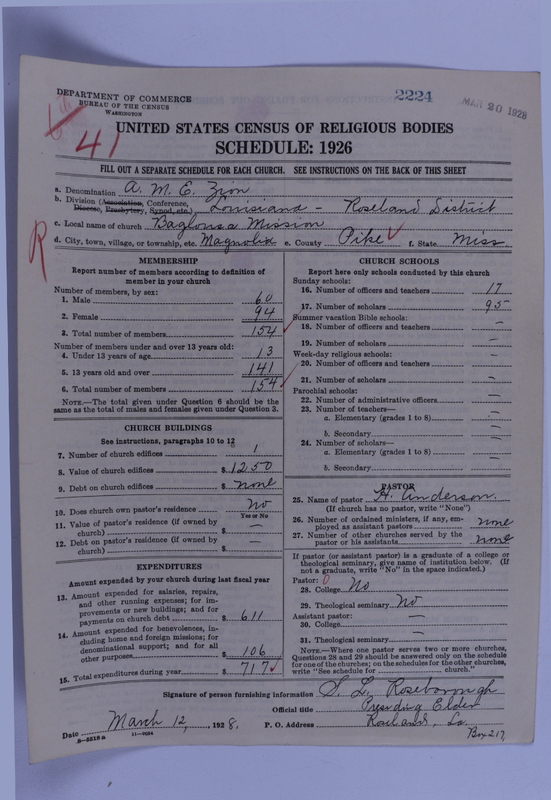 2224
MAR 20 1928
DEPARTMENT OF COMMERCE
BUREAU OF THE CENSUS
WASHINGTON
41
UNITED STATES CENSUS OF RELIGIOUS BODIES
SCHEDULE: 1926
FILL OUT A SEPARATE SCHEDULE FOR EACH CHURCH. SEE INSTRUCTIONS ON THE BACK OF THIS SHEET
a. Denomination A. M. E. Zion
b. Division (Association, Conference, Diocese, Presbytery, Synod, etc.) Louisiana - Roseland District
c. Local name of church Baglousa Mission
d. City, town, village, or township, etc. Magnolia e. County Pike f. State Miss.
R
MEMBERSHIP
Report number of members according to definition of member in your church
Number of members, by sex:
1. Male 60
2. Female 94
3. Total number of members 154
Number of members under and over 13 years old:
4. Under 13 years of age 13
5. 13 years old and over 141
6. Total number of members 154
NOTE.—The total given under Question 6 should be the same as the total of males and females given under Question 3.
CHURCH BUILDINGS
See instructions, paragraphs 10 to 12
7. Number of church edifices 1
8. Value of church edifices $ 1250
9. Debt on church edifices $ none
10. Does church own pastor's residence no
Yes or No
11. Value of pastor's residence (if owned by church) $ —
12. Debt on pastor's residence (if owned by church) $ —
EXPENDITURES
Amount expended by your church during last fiscal year
13. Amount expended for salaries, repairs, and other running expenses; for improvements or new buildings; and for payments on church debt $ 611
14. Amount expended for benevolences, including home and foreign missions; for denominational support; and for all other purposes $ 106
15. Total expenditures during year $ 717
CHURCH SCHOOLS
Report here only schools conducted by this church
Sunday schools:
16. Number of officers and teachers 17
17. Number of scholars 95
Summer vacation Bible schools:
18. Number of officers and teachers —
19. Number of scholars —
Week-day religious schools:
20. Number of officers and teachers —
21. Number of scholars —
Parochial schools:
22. Number of administrative officers —
23. Number of teachers—
a. Elementary (grades 1 to 8) —
b. Secondary —
24. Number of scholars—
a. Elementary (grades 1 to 8) —
b. Secondary —
PASTOR
25. Name of pastor H. Anderson.
(If church has no pastor, write "None")
26. Number of ordained ministers, if any, employed as assistant pastors none
27. Number of other churches served by the pastor or his assistants none
If pastor (or assistant pastor) is a graduate of a college or theological seminary, give name of institution below. (If not a graduate, write "No" in the space indicated.)
Pastor: 0
28. College No
29. Theological seminary No
Assistant pastor: —
30. College —
31. Theological seminary —
NOTE.—Where one pastor serves two or more churches, Questions 28 and 29 should be answered only on the schedule for one of the churches; on the schedules for the other churches, write "See schedule for church."
Signature of person furnishing information S. L. Roseborough
Official title Presiding Elder
Date March 12, 1928. P. O. Address Roseland, La.
Box 217
8-5518a
11-9024